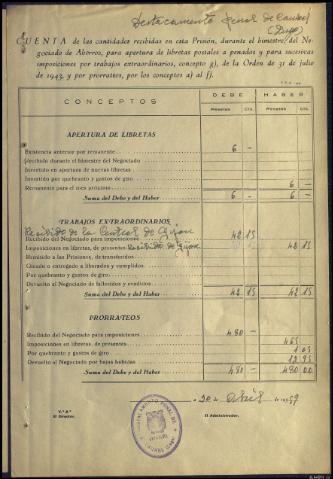 Destacamento Penal de
CUENTA de las cantidades recibidas en esta Prisión, durante el bimestre, del Ne-
gociado de Ahorros, para apertura de libretas postales a penados y para sucesivas
imposiciones por trabajos extraordinarios, concepto g), de la Orden de 31 de julio
de 1943, y por prorrateos, por los conceptos a) al f).
CONCEPTOS
DEBE HABER
Pesetas Cts. Pesetas Cts.
APERTURA DE LIBRETAS
Existencia anterior por remanente 6 —
Recibido durante el bimestre del Negociado
Invertido en apertura de nuevas libretas
Invertido por quebranto y gastos de giro
Remanente para el mes próximo 6 —
Suma del Debe y del Haber 6 — 6 —
TRABAJOS EXTRAORDINARIOS
Recibido de la Central de Gijon
Recibido del Negociado para imposiciones 42 15
Imposiciones en libretas, de presentes Recibido de Gijon 42 15
Remitido a las Prisiones, de transferidos
Girado o entregado a libertados y cumplidos
Por quebranto y gastos de giro
Devuelto al Negociado de fallecidos y evadidos
Suma del Debe y del Haber 42 15 42 15
PRORRATEOS
Recibido del Negociado para imposiciones 480 —
Imposiciones en libretas, de presentes 465
Por quebranto y gastos de giro
Devuelto al Negociado por bajas habidas 12 95
Suma del Debe y del Haber 480 — 480 00
Abril
V.º B.º
El Director,
El Administrador,